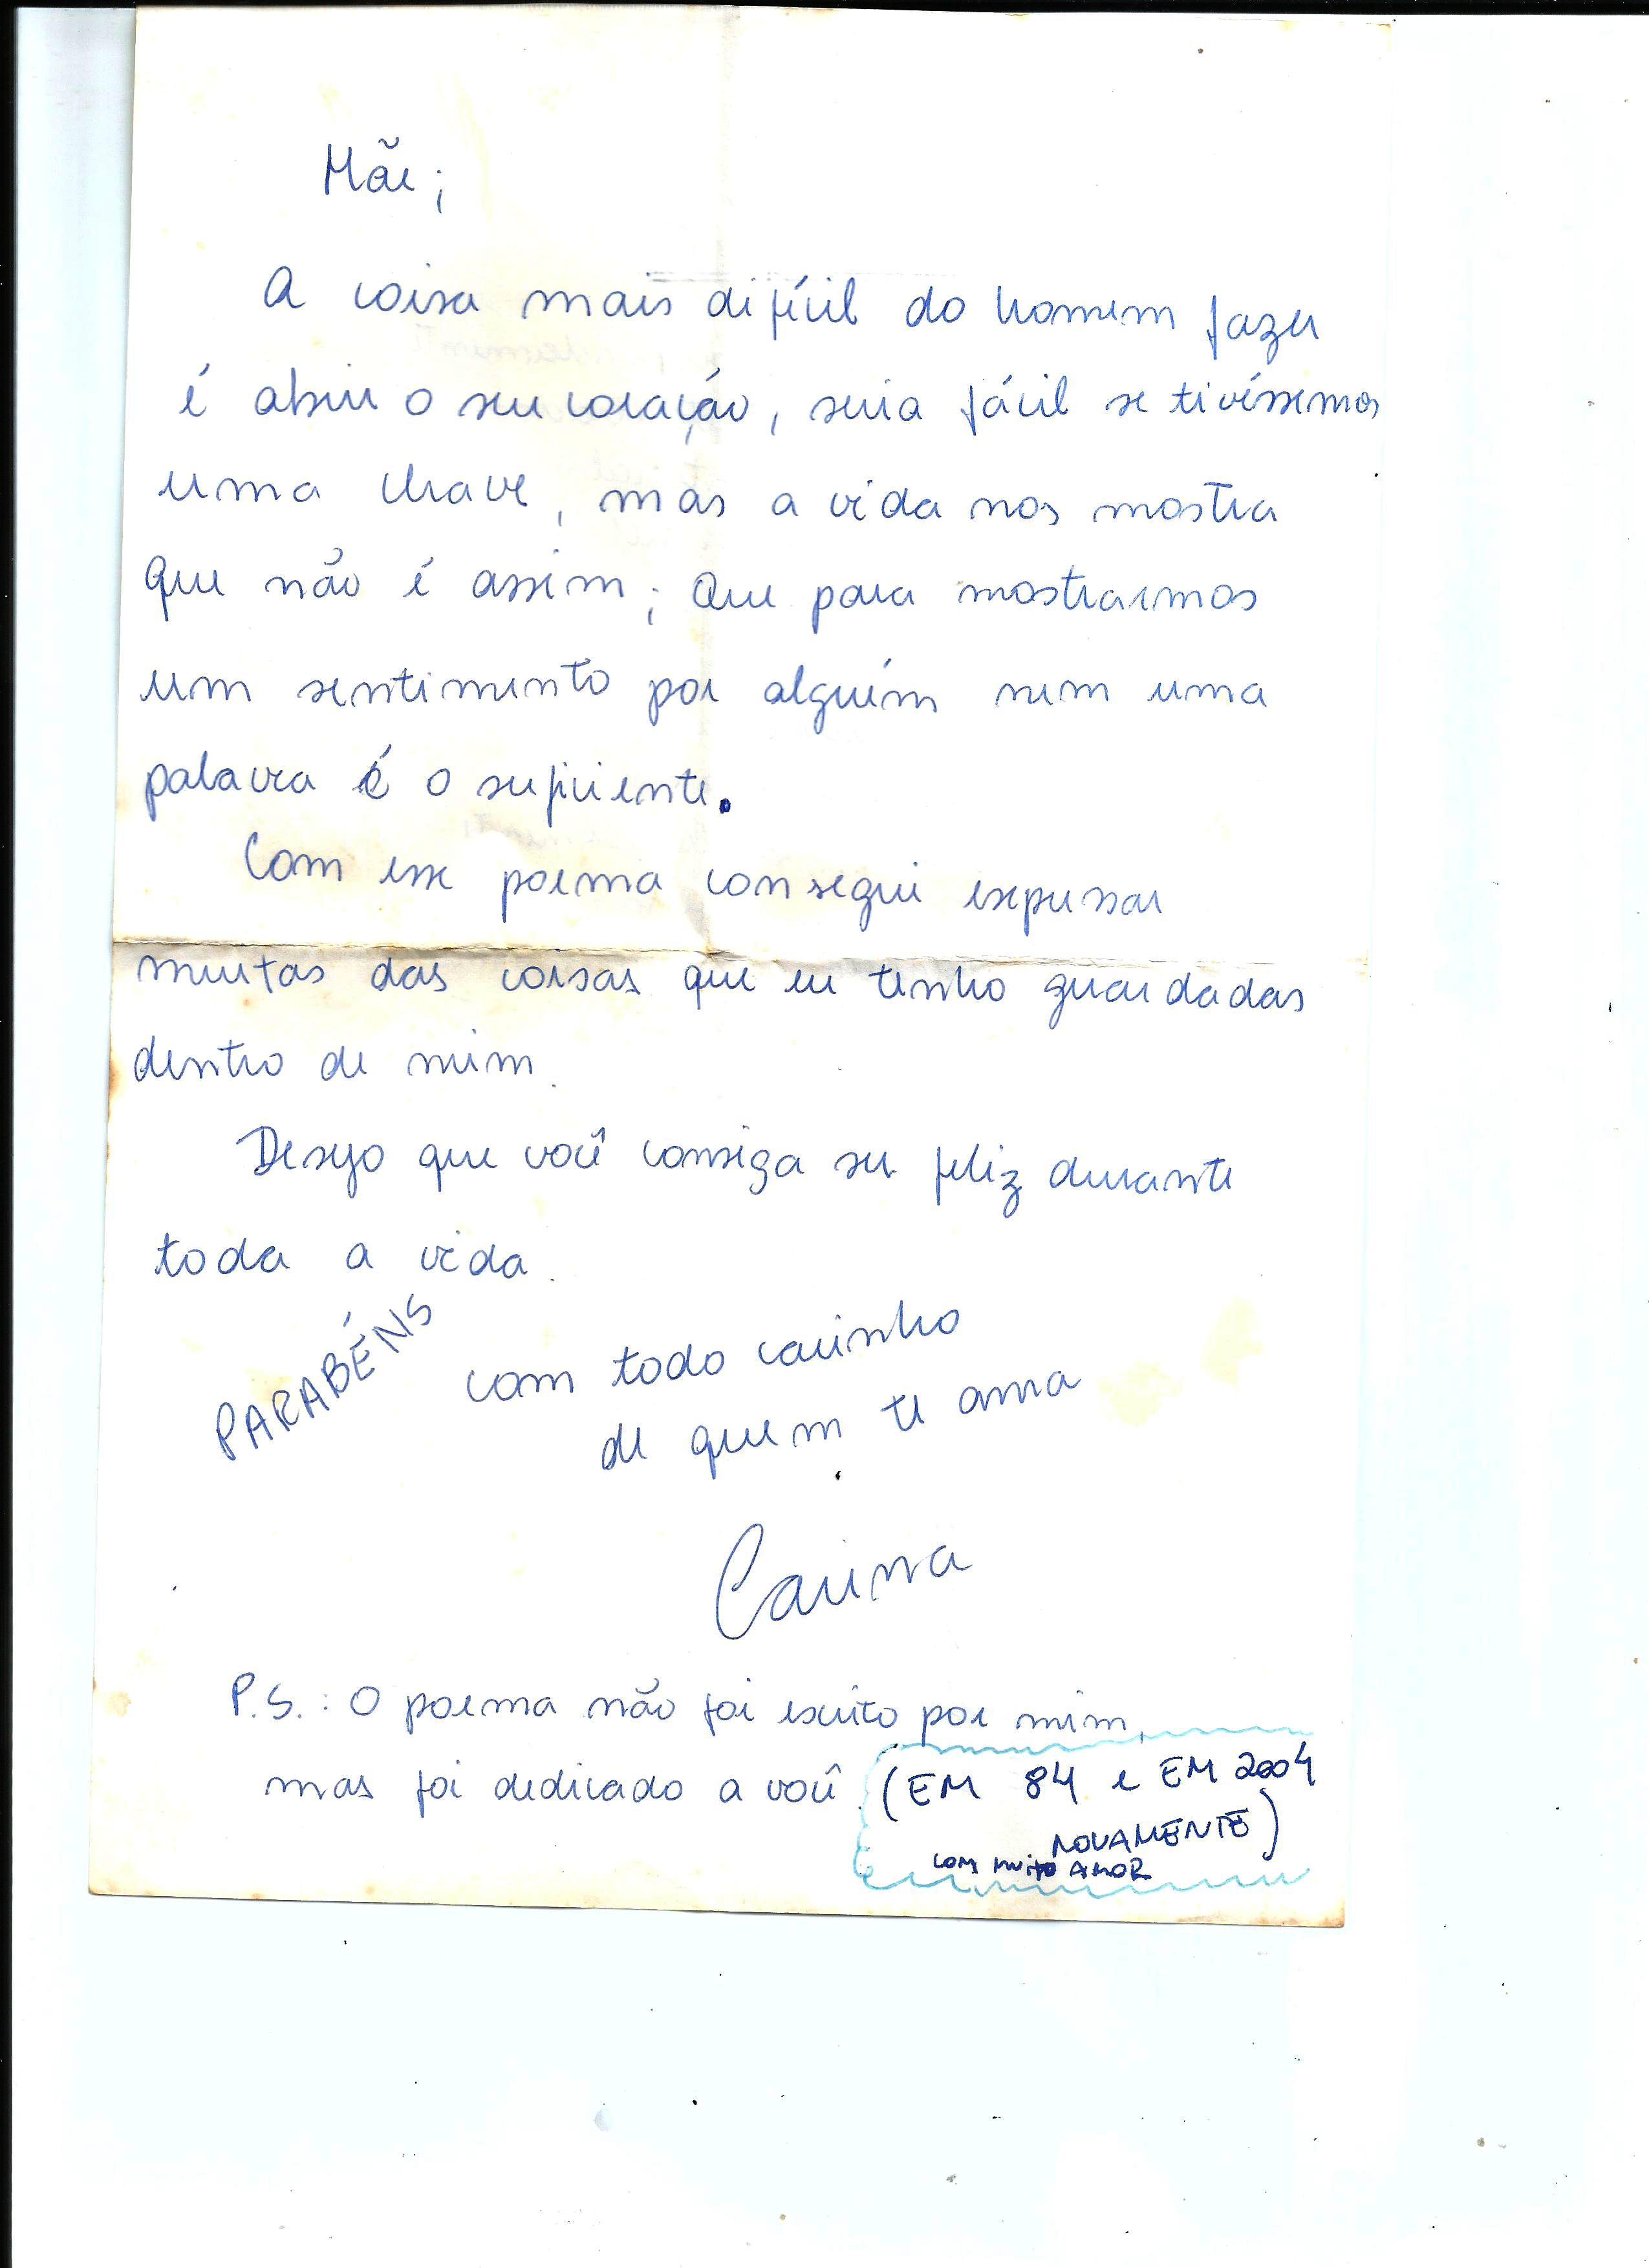 Mãe;
A coisa mais difícil do homem fazer
é abrir o seu coração, seria fácil se tivéssemos
uma chave, mas a vida nos mostra
que não é assim; Que para mostrarmos
um sentimento por alguém nem uma
palavra é o suficiente.
Com esse poema consegui expressar
muitas das coisas que eu tenho guardadas
dentro de mim.
Desejo que você consiga ser feliz durante
toda a vida.
PARABÉNS
com todo carinho
de quem te ama
Carina
P.S.: O poema não foi escrito por mim,
mas foi dedicado a você. (EM 84 e EM 2004
NOVAMENTE)
COM MUITO AMOR